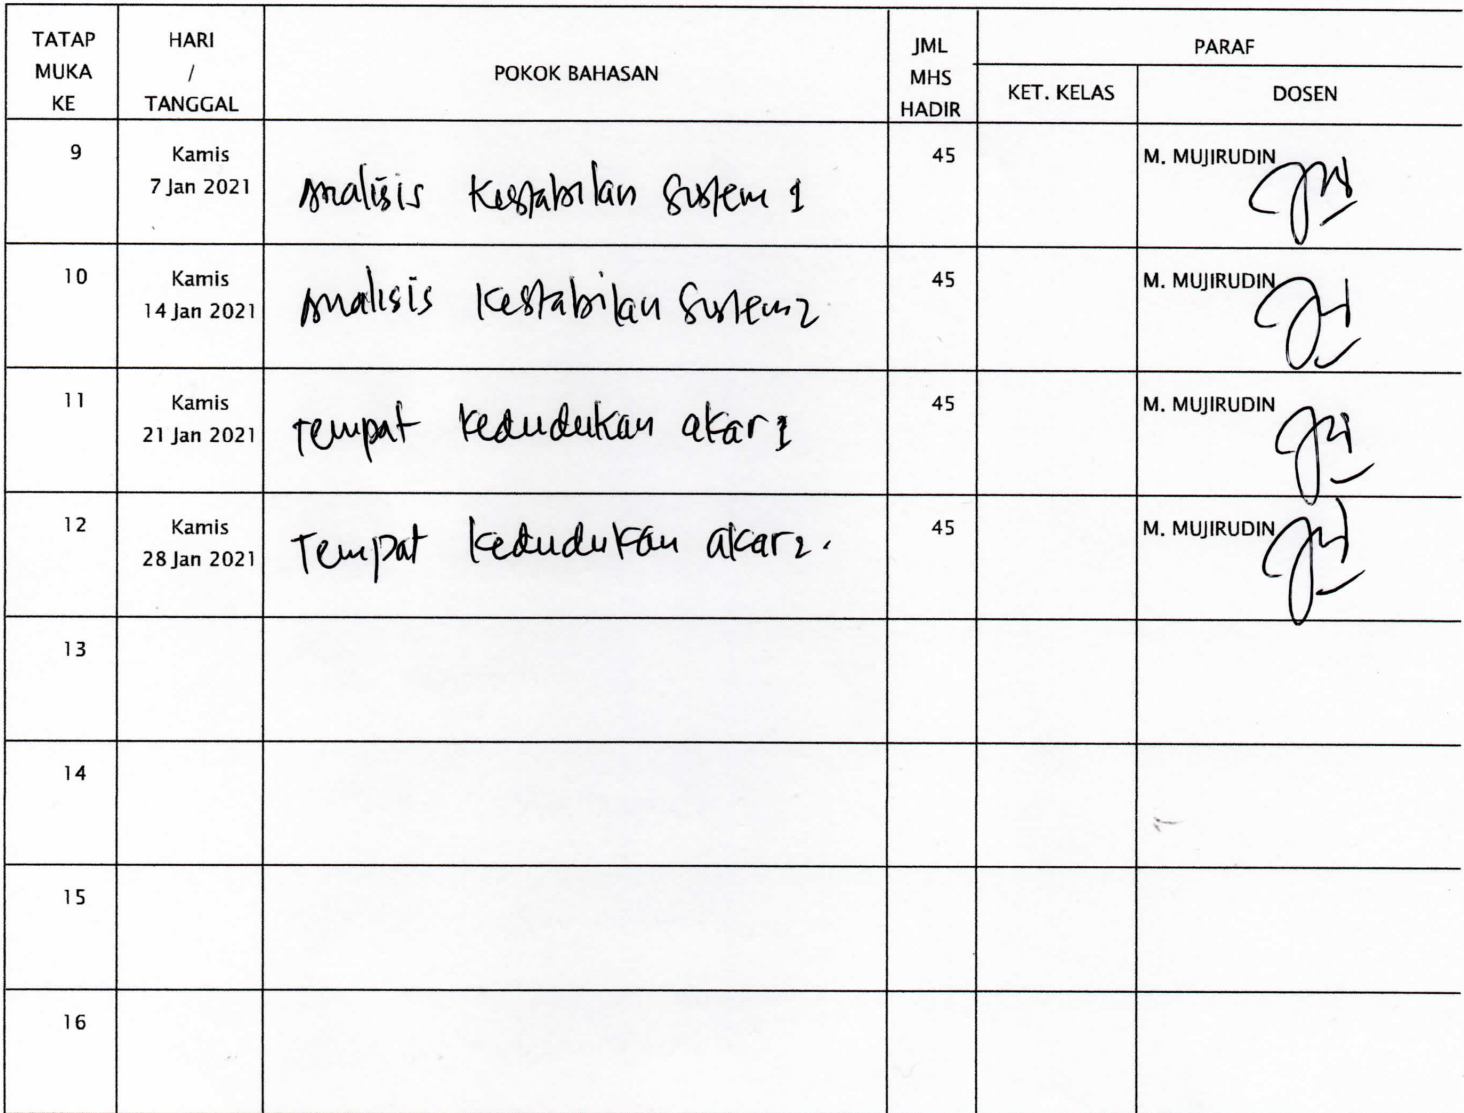 TATAP MUKA KE
HARI / TANGGAL
POKOK BAHASAN
JML MHS HADIR
PARAF
KET. KELAS
DOSEN
9
Kamis
7 Jan 2021
Analisis Kestabilan Sistem 1
45
M. MUJIRUDIN
10
Kamis
14 Jan 2021
Analisis Kestabilan Sistem 2
45
M. MUJIRUDIN
11
Kamis
21 Jan 2021
Tempat kedudukan akar 1
45
M. MUJIRUDIN
12
Kamis
28 Jan 2021
Tempat kedudukan akar 2.
45
M. MUJIRUDIN
13
14
15
16